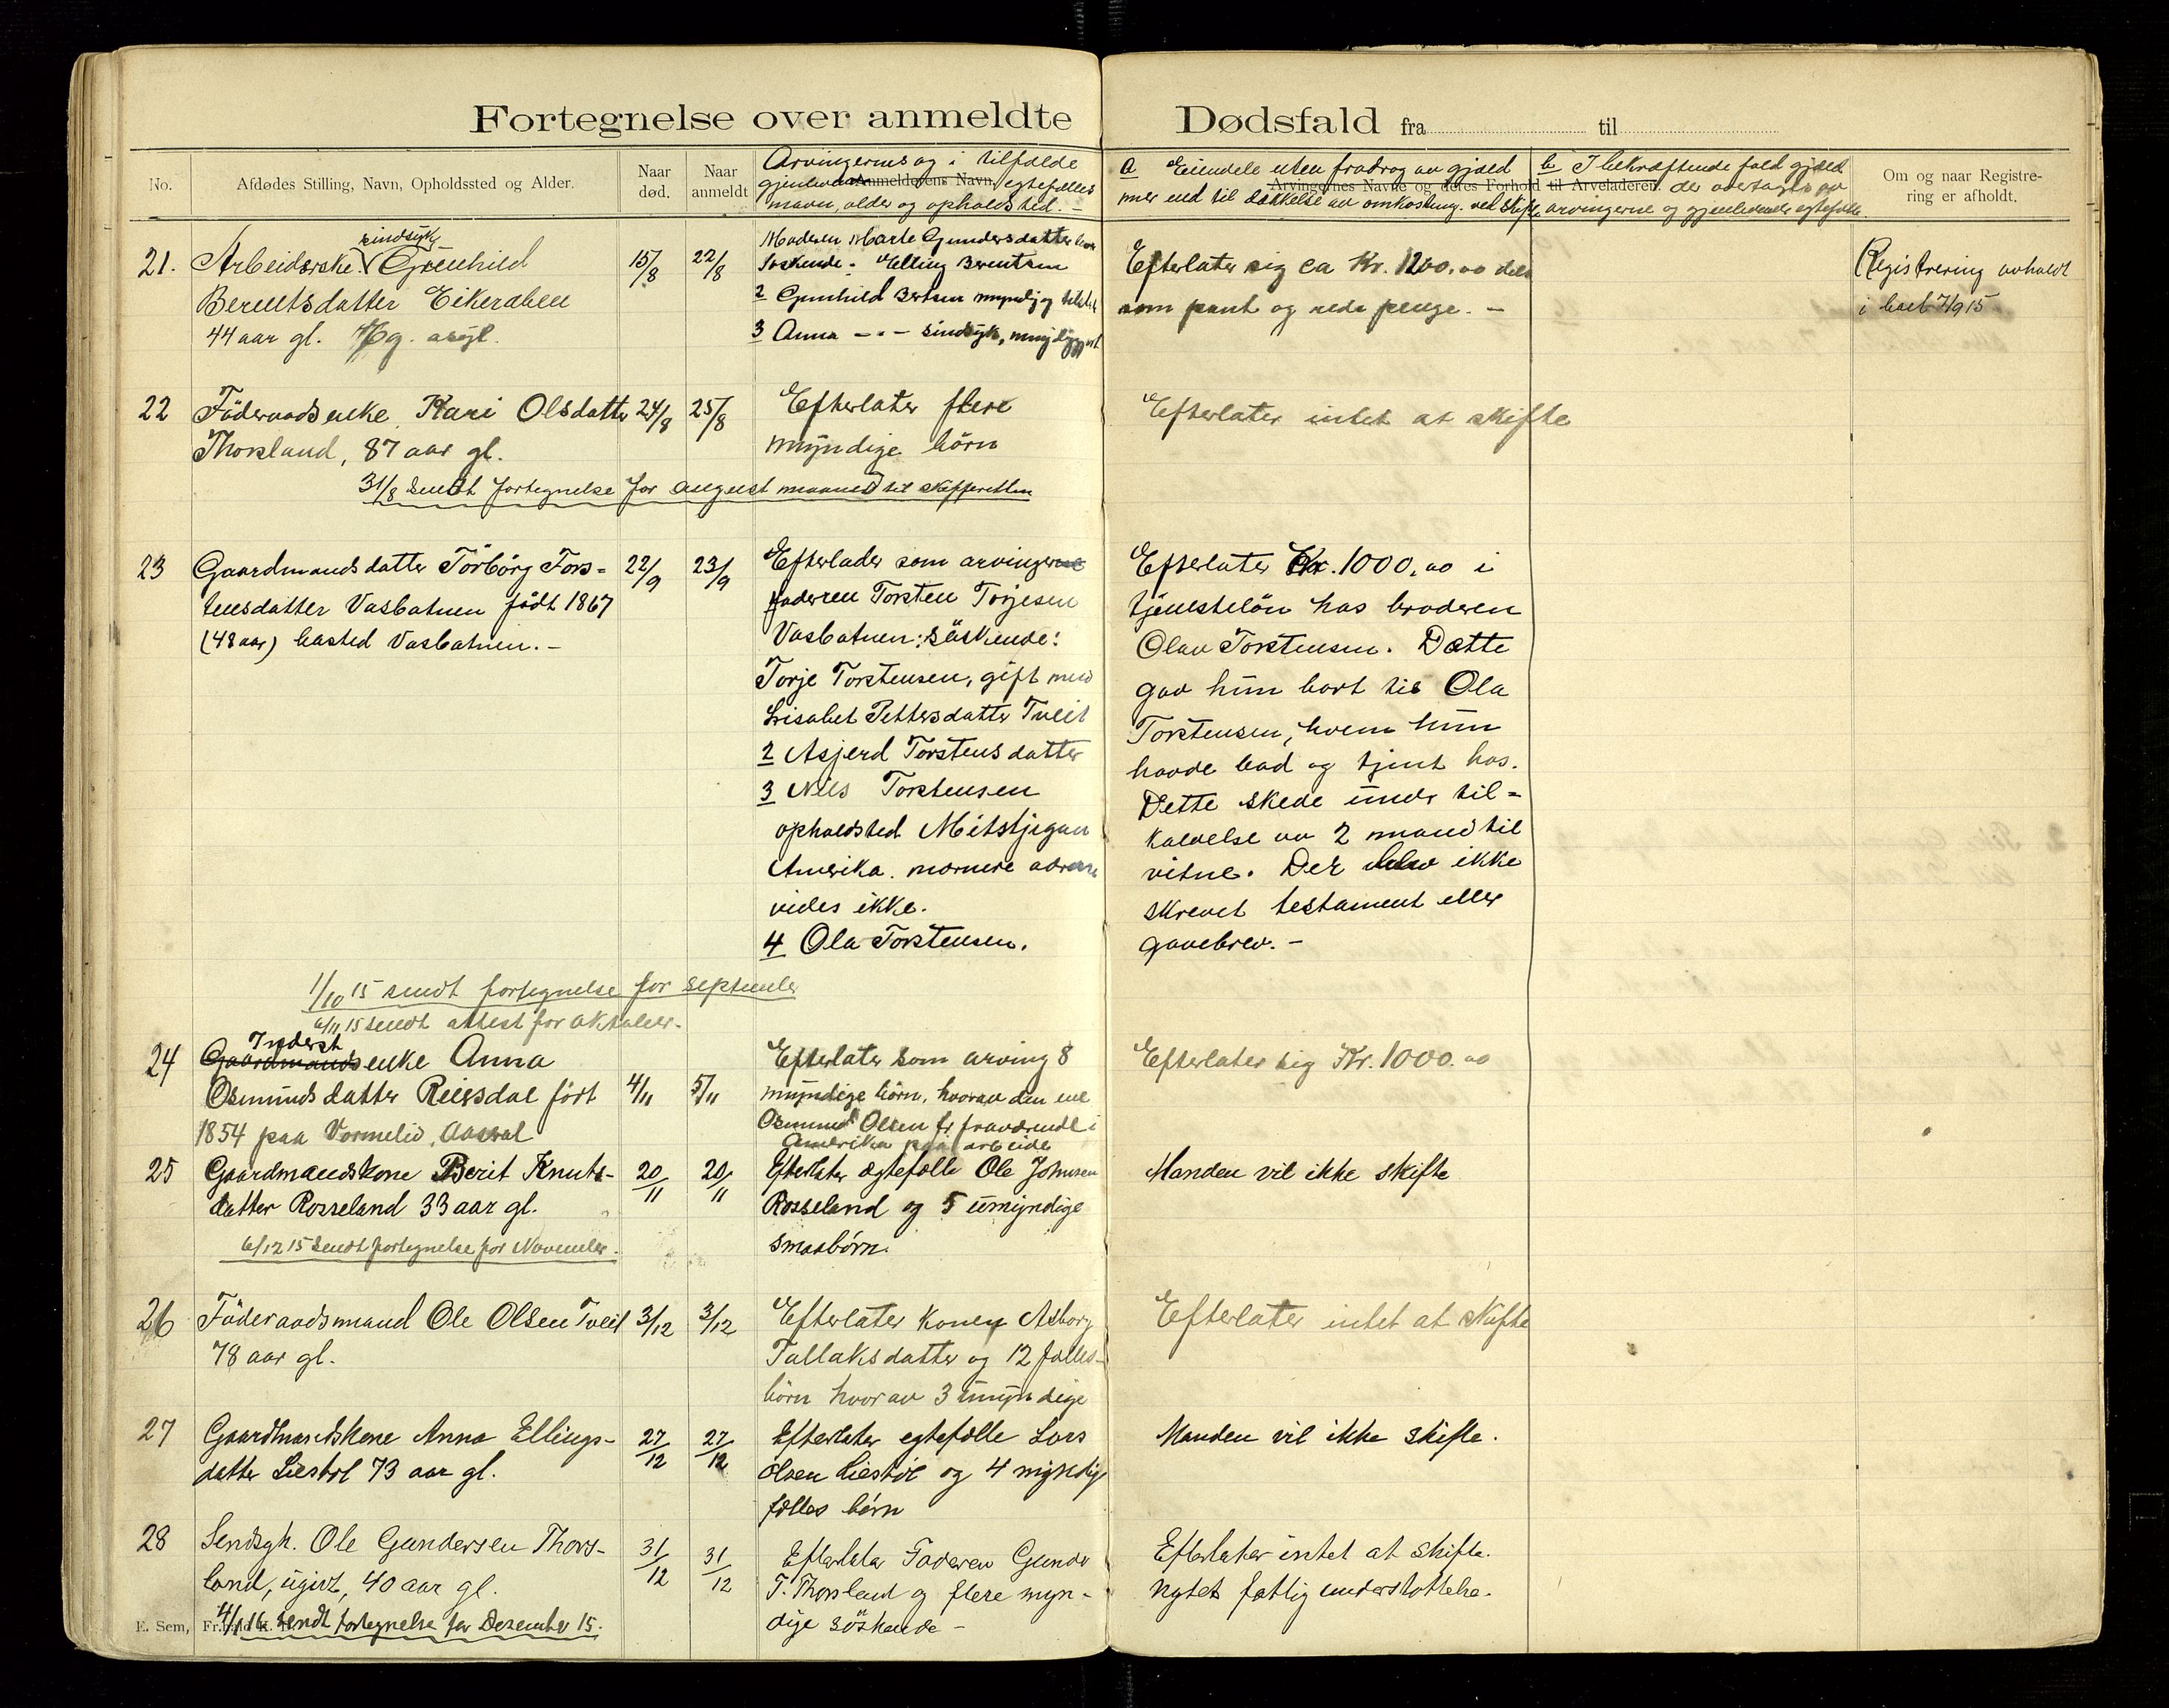 Fortegnelse over anmeldte Dødsfald fra til
No.
Afdødes Stilling, Navn, Opholdssted og Alder.
Naar død.
Naar anmeldt
Arvingernes og i tilfælde
gjenlevende Anmelderens Navn egtefælles
navn, alder og opholdsted. -
a Eiendele uten fradrag av gjæld
Arvingernes Navne og deres Forhold til Arveladeren.
mer end til dækkelse av omkostning. ved skifte
b I bekræftende fald gjæld
der overtages av
arvingerne og gjenlevende egtefælle.
Om og naar Registre-
ring er afholdt.
21.
sindsyk
Arbeiderske Gunhild
Berentsdatter Eikeraaen
44 aar gl.
15/8
22/8
Moderen Marte Gundersdatter
Søskende: Elling Berentsen
2 Gunhild Bertsen myndig
3 Anna - " - sindsyk, myndig
Efterlater sig ca Kr. 1200.00 dels
som pant og rede penge. -
Registrering avholdt
i boet 7/9 15
22
Föderaadsenke Kari Olsdatter
Thorsland, 87 aar gl.
24/8
25/8
Efterlater flere
myndige börn
Efterlater intet at skifte
31/8 Sendt fortegnelse for august maaned til skifteretten
23
Gaardmandsdatter Törbörg Tors=
tensdatter Vasbotnen födt 1867
(48 aar) bosted Vasbotnen. -
22/9
23/9
Efterlader som arvingerne
faderen Torsten Torjesen
Vasbotnen: Söskende:
Torje Torstensen, gift med
Lisabet Pettersdatter Tveit
2 Asjerd Torstensdatter
3 Nils Torstensen
opholdsted Mitstjegan
Amerika. nærmere adresse
vides ikke.
4 Ola Torstensen.
Efterlater Kr. 1000.00 i
tjenestelön hos broderen
Olav Torstensen. Dette
gav hun bort til Ola
Torstensen, hvem hun
havde bod og tjent hos.
Dette skede under til=
kaldelse av 2 mand til
vitne. Der blev ikke
skrevet testament eller
gavebrev. -
1/10 15 sendt fortegnelse for September
6/11 15 sendt attest for oktober.
24
Inderst
Gaardmandsenke Anna
Osmundsdatter Reiersdal født
1854 paa Vormelid, Aaseral
4/11
5/11
Efterlater som arving 8
myndige börn, hvorav den ene
Osmund Olsen er fraværende i
Amerika paa arbeide
Efterlater sig Kr. 1000.00
25
Gaardmandskone Berit Knuts-
datter Rosseland 33 aar gl.
20/11
20/11
Efterlater ægtefælle Ole Johnsen
Rosseland og 5 umyndige
smaabörn.
Manden vil ikke skifte
6/12 15 Sendt fortegnelse for November.
26
Föderaadsmand Ole Olsen Tveit
78 aar gl.
3/12
3/12
Efterlater konen Asborg
Tallaksdatter og 12 fælles-
börn hvorav 3 umyndige
Efterlater intet at skifte
27
Gaardmandskone Anna Ellings-
datter Liestøl 73 aar gl.
27/12
27/12
Efterlater egtefælle Lars
Olsen Liestøl og 4 myndige
fælles børn
Manden vil ikke skifte.
28
Sendsyk. Ole Gundersen Thors-
land, ugivt, 40 aar gl.
31/12
31/12
Efterlater Faderen Gunder
T. Thorsland og flere myn-
dige söskende -
Efterlater intet at skifte.
Nytet fattig understøttelse.
E. Sem, Fr.hald
4/1 16 sendt fortegnelse for Desember 15.